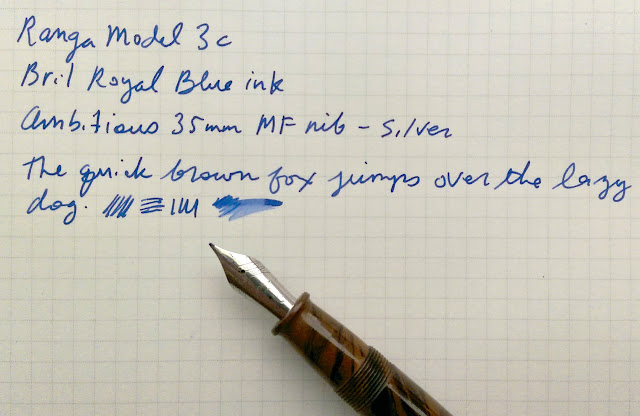 Ranga Model 3c
Bril Royal Blue ink
Ambitious 35mm MF nib - Silver
The quick brown fox jumps over the lazy
dog.